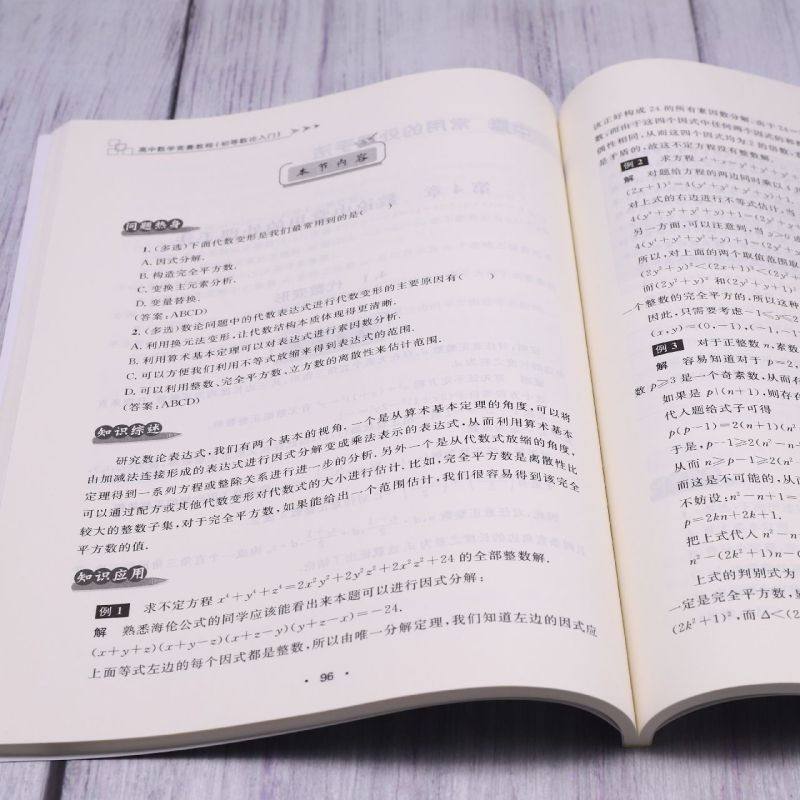 高中数学竞赛教程(初等数论入门)
本节内容
问题热身
1. (多选)下面代数变形是我们最常用到的是( )
A. 因式分解.
B. 构造完全平方数.
C. 变换主元素分析.
D. 变量替换.
(答案:ABCD)
2. (多选)数论问题中的代数表达式进行代数变形的主要原因有( )
A. 利用换元法变形,让代数结构本质体现得更清晰.
B. 利用算术基本定理可以对表达式进行素因数分析.
C. 可以方便我们利用不等式放缩来得到表达式的范围.
D. 可以利用整数、完全平方数、立方数的离散性来估计范围.
(答案:ABCD)
知识综述
研究数论表达式,我们有两个基本的视角.一个是从算术基本定理的角度,可以将
由加减法连接形成的表达式进行因式分解变成乘法表示的表达式,从而利用算术基本
定理得到一系列方程或整除关系进行进一步的分析.另外一个是从代数式放缩的角度,
可以通过配方或其他代数变形对代数式的大小进行估计.比如,完全平方数是离散性比
较大的整数子集,对于完全平方数,如果能给出一个范围估计,我们很容易得到该完全
平方数的值.
知识应用
例1 求不定方程 x⁴+y⁴+z⁴=2x²y²+2y²z²+2x²z²+24 的全部整数解.
解 熟悉海伦公式的同学应该能看出来本题可以进行因式分解:
(x+y+z)(x+y-z)(x+z-y)(y+z-x)=-24.
上面等式左边的每个因式都是整数,所以由唯一分解定理,我们知道左边的因式应
· 96 ·
该正好构成 24 的所有素因数分解.由于 24=
数;而由于这四个因式中任何两个因式的和
偶性相同,从而这四个因式均为 2 的倍数.
是矛盾的,故这不定方程没有整数解.
例2 求方程 x²+x=y⁴+y³+y²+
解 对题给方程的两边同时乘以 4
(2x+1)²=4(y⁴+y³+y²+y)+1.
对上式的右边进行不等式估计,当
4(y⁴+y³+y²+y)+1=(2y²+y
另一方面,可以注意到,当 y>0
4(y⁴+y³+y²+y)+1=(2y²+y
所以,对上面的两个取值范围取
(2y²+y)²<(2x+1)²<(2y²
而(2y²+y)² 和(2y²+y+1)²
一个整数的完全平方的,所以这种
因此,只需要考虑-1≤y≤2
(x,y)=(0,-1),(-1,-1
例3 对于正整数 n,素数
解 容易知道对于 p=2,
数 p≥3 是一个奇素数,从而存
如果是 p|(n+1),则存在
代入题给式子可得
p(p-1)=2(n+1)(n²
于是,p-1≥2(n²-n
从而 n≥p-1≥2(n²
而这是不可能的,从而
不妨设:n²-n+1=
p=2kn+2k+1.
把上式代入 n²-n
n²-(2k²+1)n-(
上式的判别式为
一定是完全平方数,
(2k²+1)²,而 Δ<(2